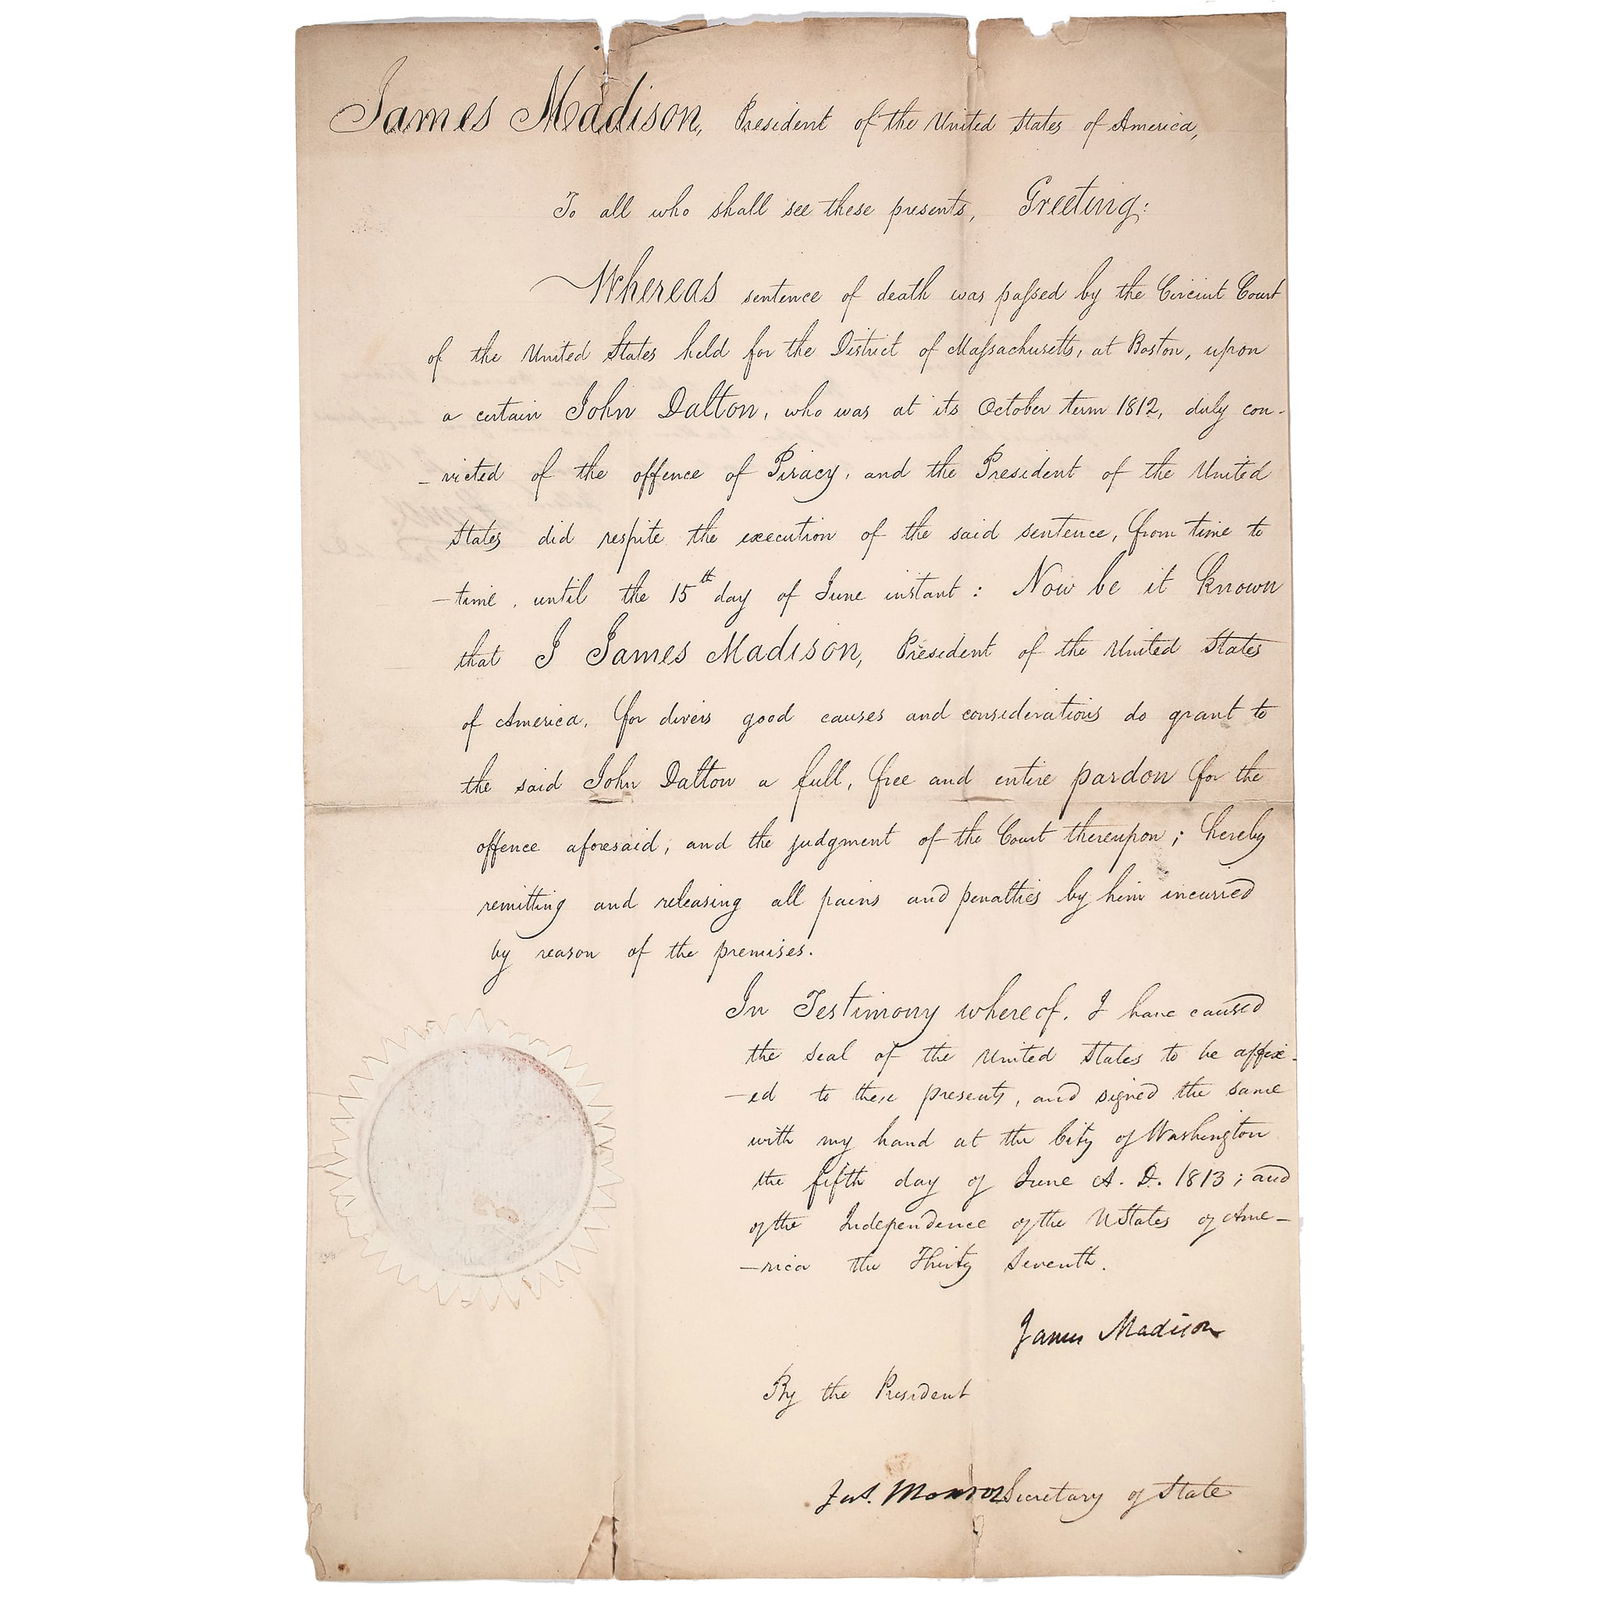 James Madison, President of the United States of America,
To all who shall see these presents, Greeting:
Whereas sentence of death was passed by the Circiut Court
of the United States held for the District of Massachusetts, at Boston, upon
a certain John Dalton, who was at its October term 1812, duly con-
-victed of the offence of Piracy, and the President of the United
States did respite the execution of the said sentence, from time to
-time, until the 15th day of June instant: Now be it known
that I James Madison, President of the United States
of America, for divers good causes and considerations do grant to
the said John Dalton a full, free and entire pardon for the
offence aforesaid, and the judgment of the Court thereupon; hereby
remitting and releasing all pains and penalties by him incurred
by reason of the premises.
In Testimony whereof, I have caused
the seal of the United States to be affix-
-ed to these presents, and signed the same
with my hand at the City of Washington
the fifth day of June A. D. 1813; and
of the Independence of the UStates of Ame-
-rica the Thirty Seventh.
James Madison
By the President
Jas. Monroe Secretary of State